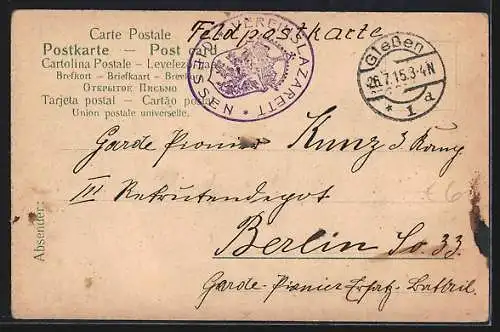 Carte Postale
Postkarte — Post card
Cartolina Postale — Levelező
Brefkort — Briefkaart — Brevkort
Открытое Письмо
Tarjeta postal — Cartão postal
Union postale universelle.
Feldpostkarte
VEREINSLAZARETT * HESSEN
Gießen
26.7.15.3-4N
* 1 d
Garde Pionier Kunz 3. Komp.
III Rekrutendepot
Berlin So. 33.
Garde-Pionier Ersatz-Bataill.
Absender: